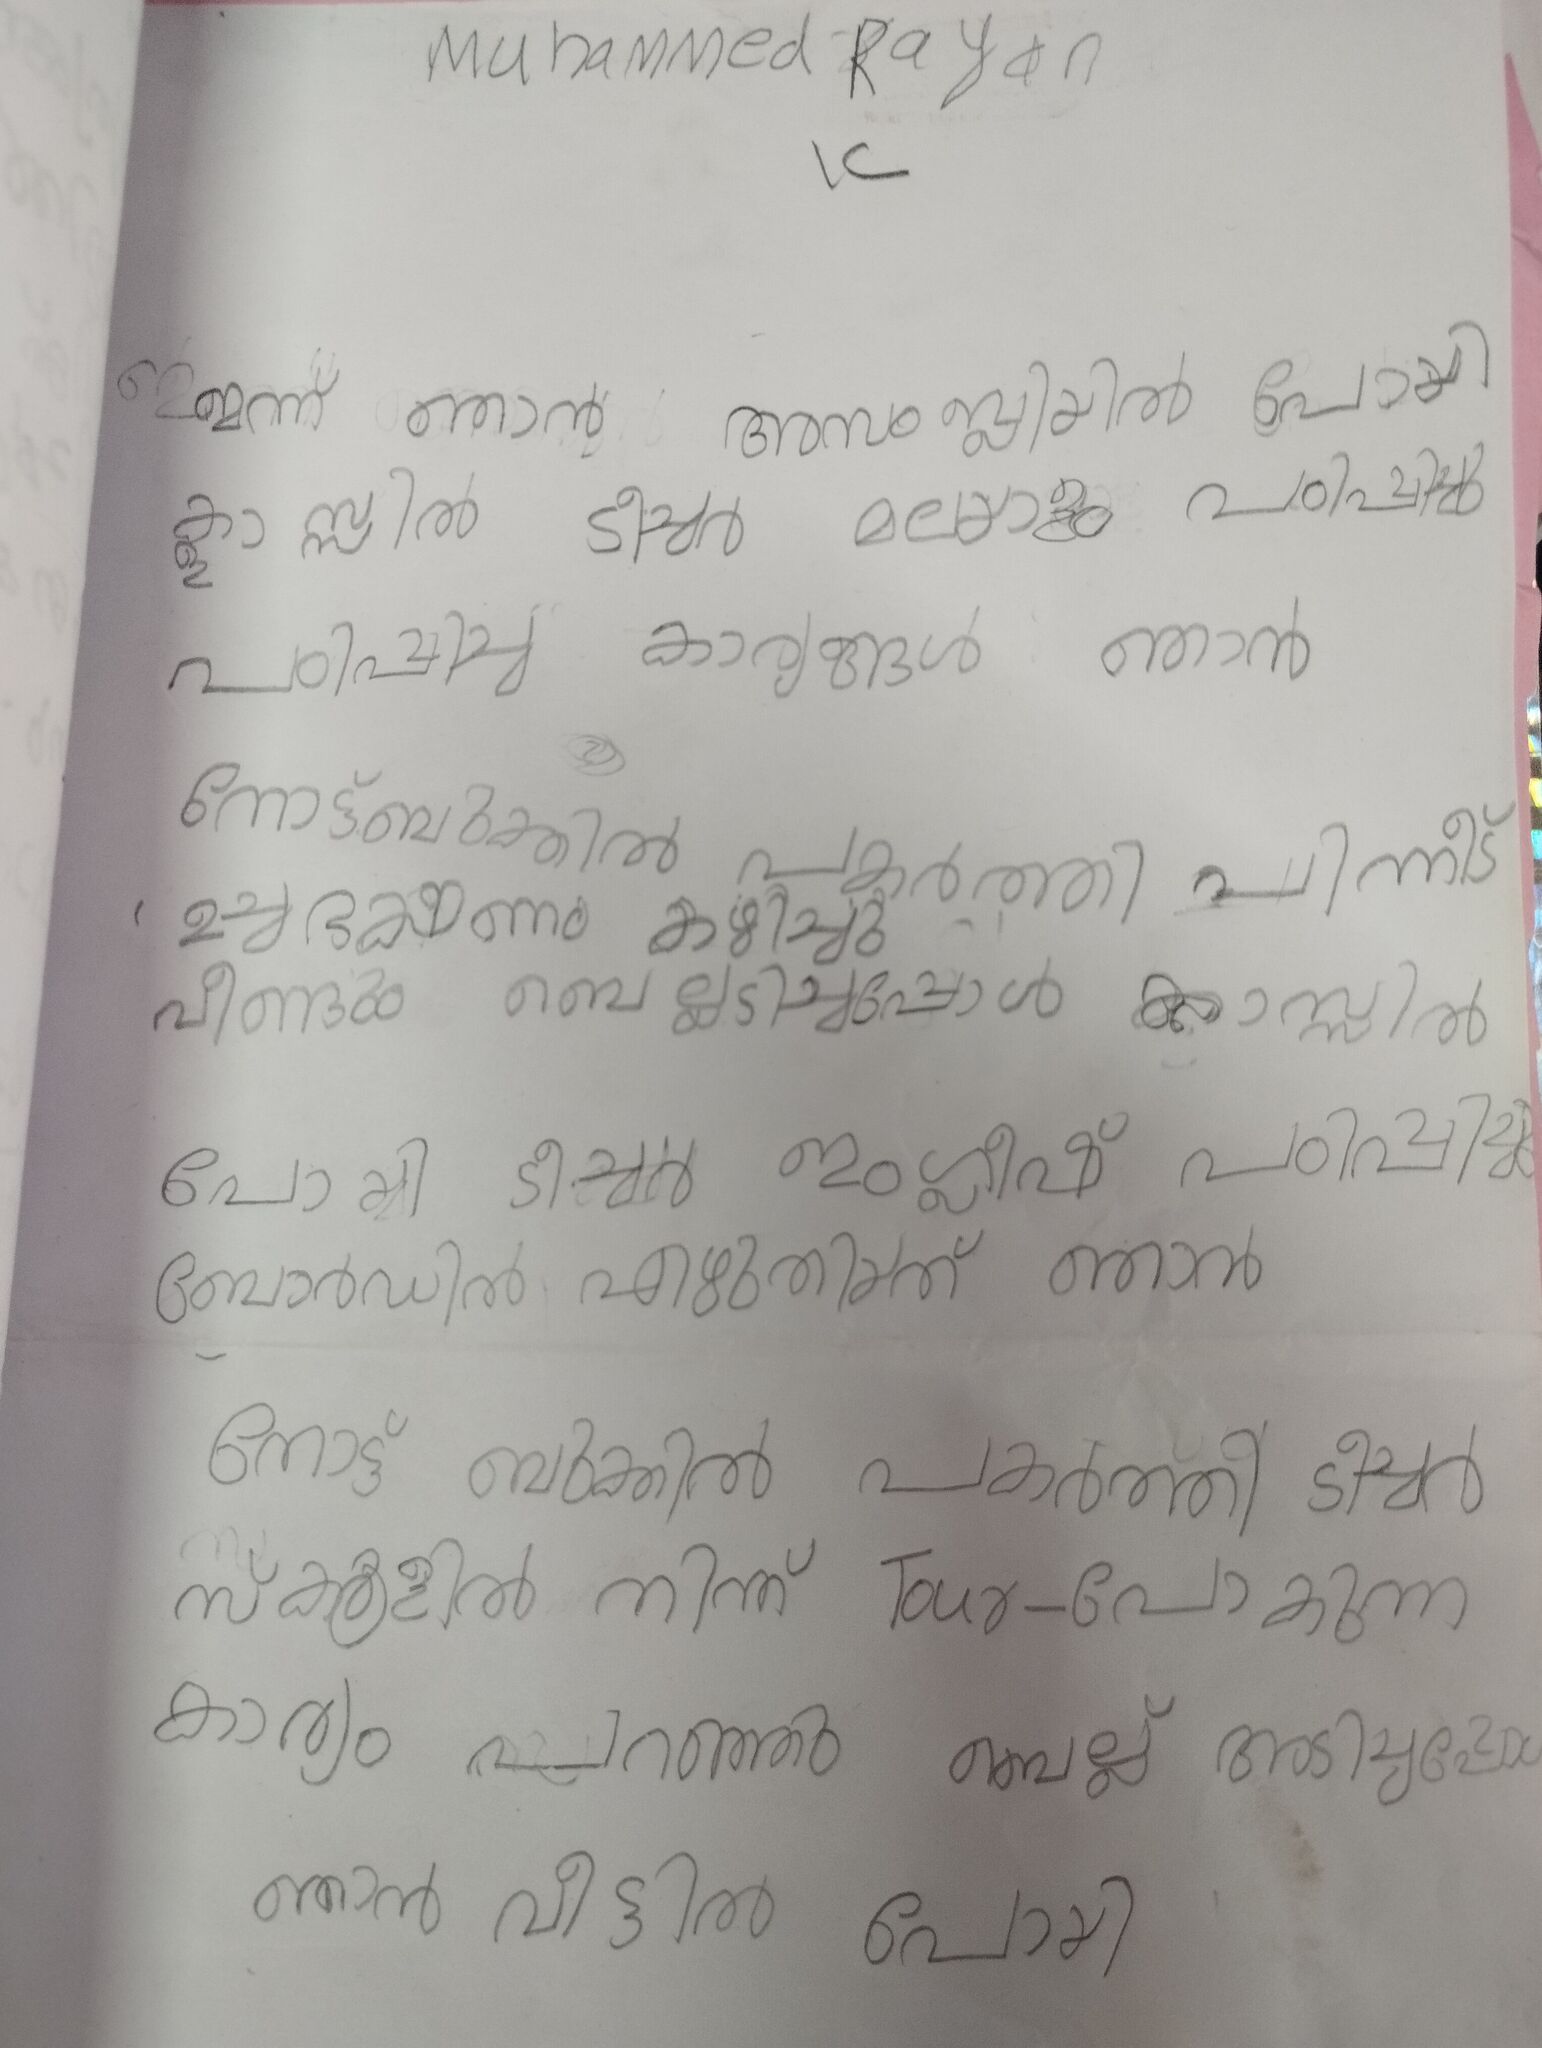 Muhammed Rayan
1C
ഇന്ന് ഞാൻ അസംബ്ലിയിൽ പോയി
ക്ലാസ്സിൽ ടീച്ചർ മലയാളം പഠിപ്പിച്ചു
പഠിപ്പിച്ച കാര്യങ്ങൾ ഞാൻ
നോട്ട്ബുക്കിൽ പകർത്തി പിന്നീട്
ഉച്ചഭക്ഷണം കഴിച്ചു
വീണ്ടും ബെല്ലടിച്ചപ്പോൾ ക്ലാസ്സിൽ
പോയി ടീച്ചർ ഇംഗ്ലീഷ് പഠിപ്പിച്ചു
ബോർഡിൽ എഴുതിയത് ഞാൻ
നോട്ട് ബുക്കിൽ പകർത്തി ടീച്ചർ
സ്കൂളിൽ നിന്ന് Tour-പോകുന്ന
കാര്യം പറഞ്ഞു ബെല്ല് അടിച്ചപ്പോൾ
ഞാൻ വീട്ടിൽ പോയി